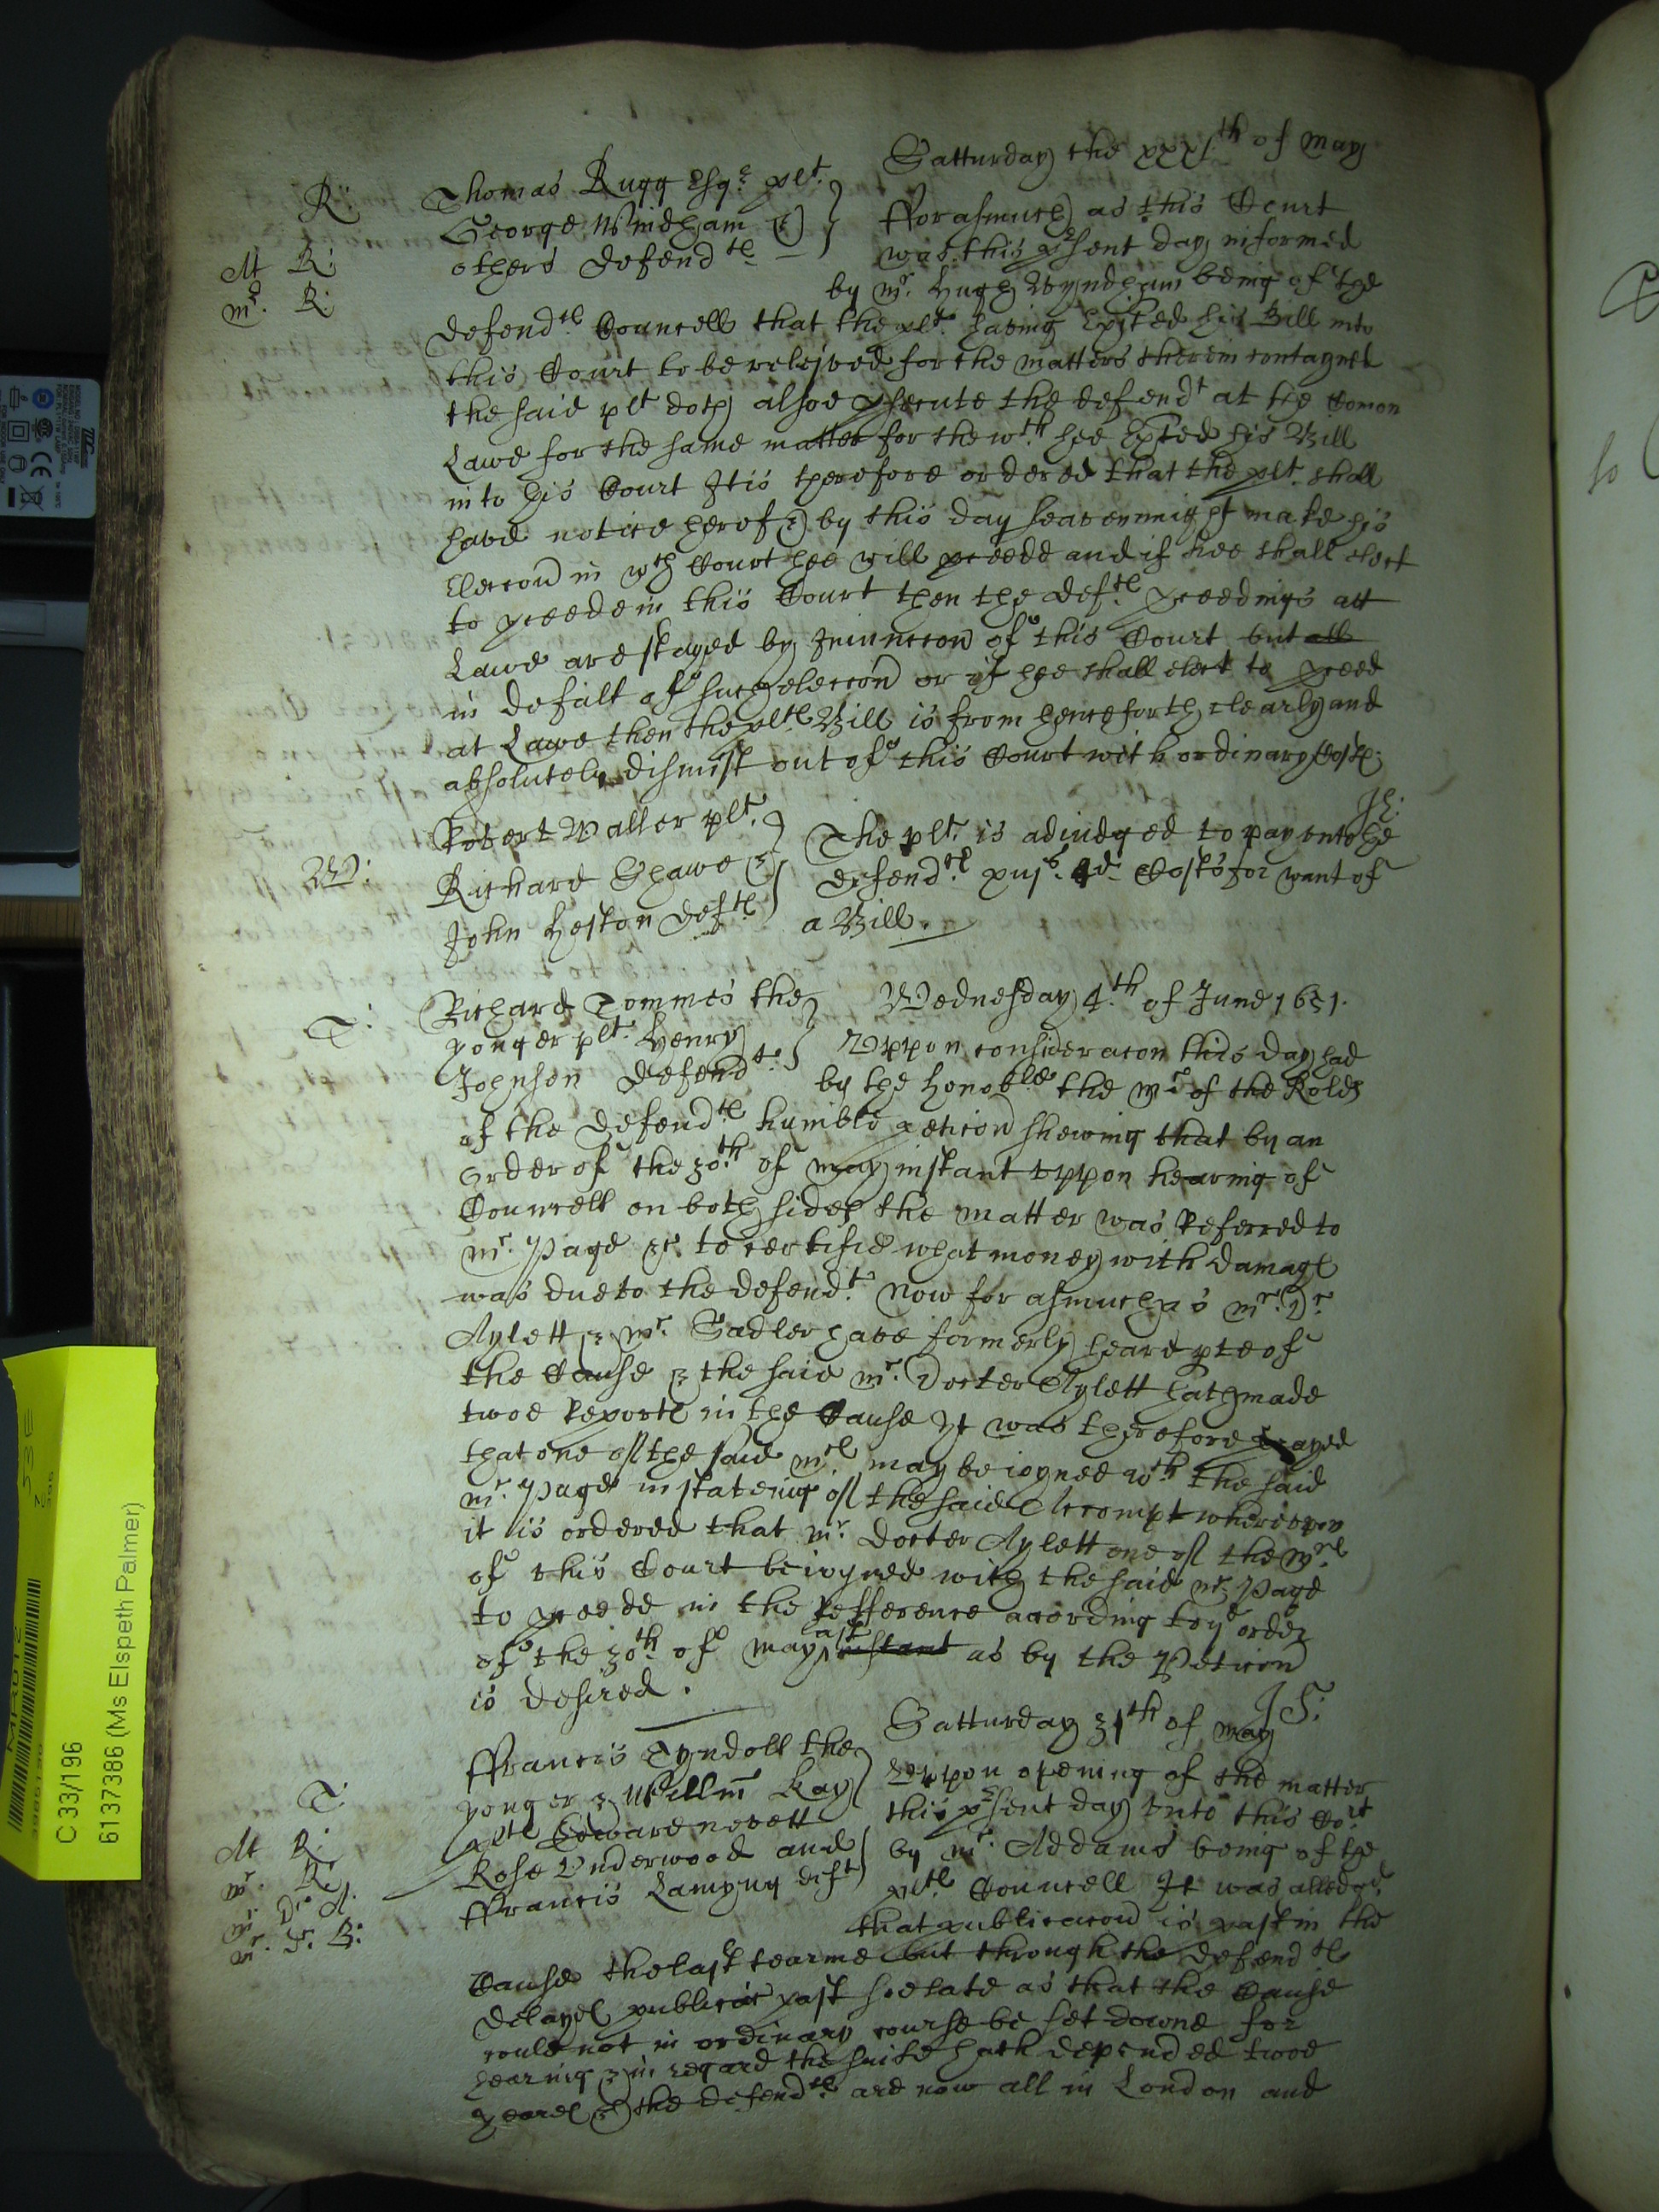 Satturday the xxxjth of May
R:
Thomas Rugg Esqr plt
George Windham &
others defendtes
At R:
Mr. R:
fforasmuch as this Court
was this prsent day informed
by Mr. Hugh Wyndham being of the
defendtes Councell that the plt having exhited his Bill into
this Court to be releived for the matters therein contayned
the said plt doth alsoe psecute the defendt at the Comon
Lawe for the same matter for the wch hee exhted his Bill
into his Court It is therefore ordered that the plt. shall
have notice herof & by this day seavennight make his
Eleccon in wch Court hee will pceede and if hee shall elect
to pceede in this Court then the deftes pceedings att
Lawe are stayed by Iniunccon of this Court but all
in default of such eleccon or if hee shall elect to pceed
at Lawe then the pltes Bill is from henceforth clearly and
absolutely dismist out of this Court with ordinary Costes
Jh:
W:
Robert Waller plt.
Richard Shawe &
John Heston deftes
The plt. is adiudged to pay unto the
defendtes xiijs. 4d Costs for want of
a Bill.
T:
Richard Tommes the
yonger plt. Henry
Johnson defendt.
Wednesday 4th of June 1651.
Uppon consideracon this day had
by the honoble the Mr of the Roles
of the defendtes humble peticon shewing that by an
order of the 30th of May instant uppon hearing of
Councell on both sides the matter was Referred to
Mr. Page &c. to certifie what money with damages
was due to the defendt. Now for asmuch as Mr. Dr.
Aylett & Mr. Sadler have formerly heard pte of
the Cause & the said Mr. Docter Aylett hath made
twoe Reportes in the Cause yt was therefore prayed
that one of the said Mres may be ioyned wth the said
Mr. Page in stateing of the said Accompt whereupon
it is ordered that Mr. Docter Aylett one of the Mres
of this Court be ioyned with the said Mr. Page
to pceede in the Refference acording to ye order
of the 30th of May last instant as by the Peticon
is desired.
J S:
Satturday 31th of May
T:
ffrancis Tyndoll the
yonger & Willm Kay
pltes Edward Nevett
Rose Underwood and
ffrancis Lampug deftes
At R:
Mr. R:
Mr. Dr A:
Mr. Sr. B:
Uppon opening of the matter
this prsent day unto this Cort
by Mr. Addams being of the
pltes Councell It was alledged
that publicacon is past in the
Cause the last tearme but through the defendtes
delayes publicac past soe late as that the Cause
could not in ordinary course be set downe for
hearing & in regard the suite hath depended twoe
yeares & the defendtes are now all in London and
C 33/196
6137386 (Ms Elspeth Palmer)